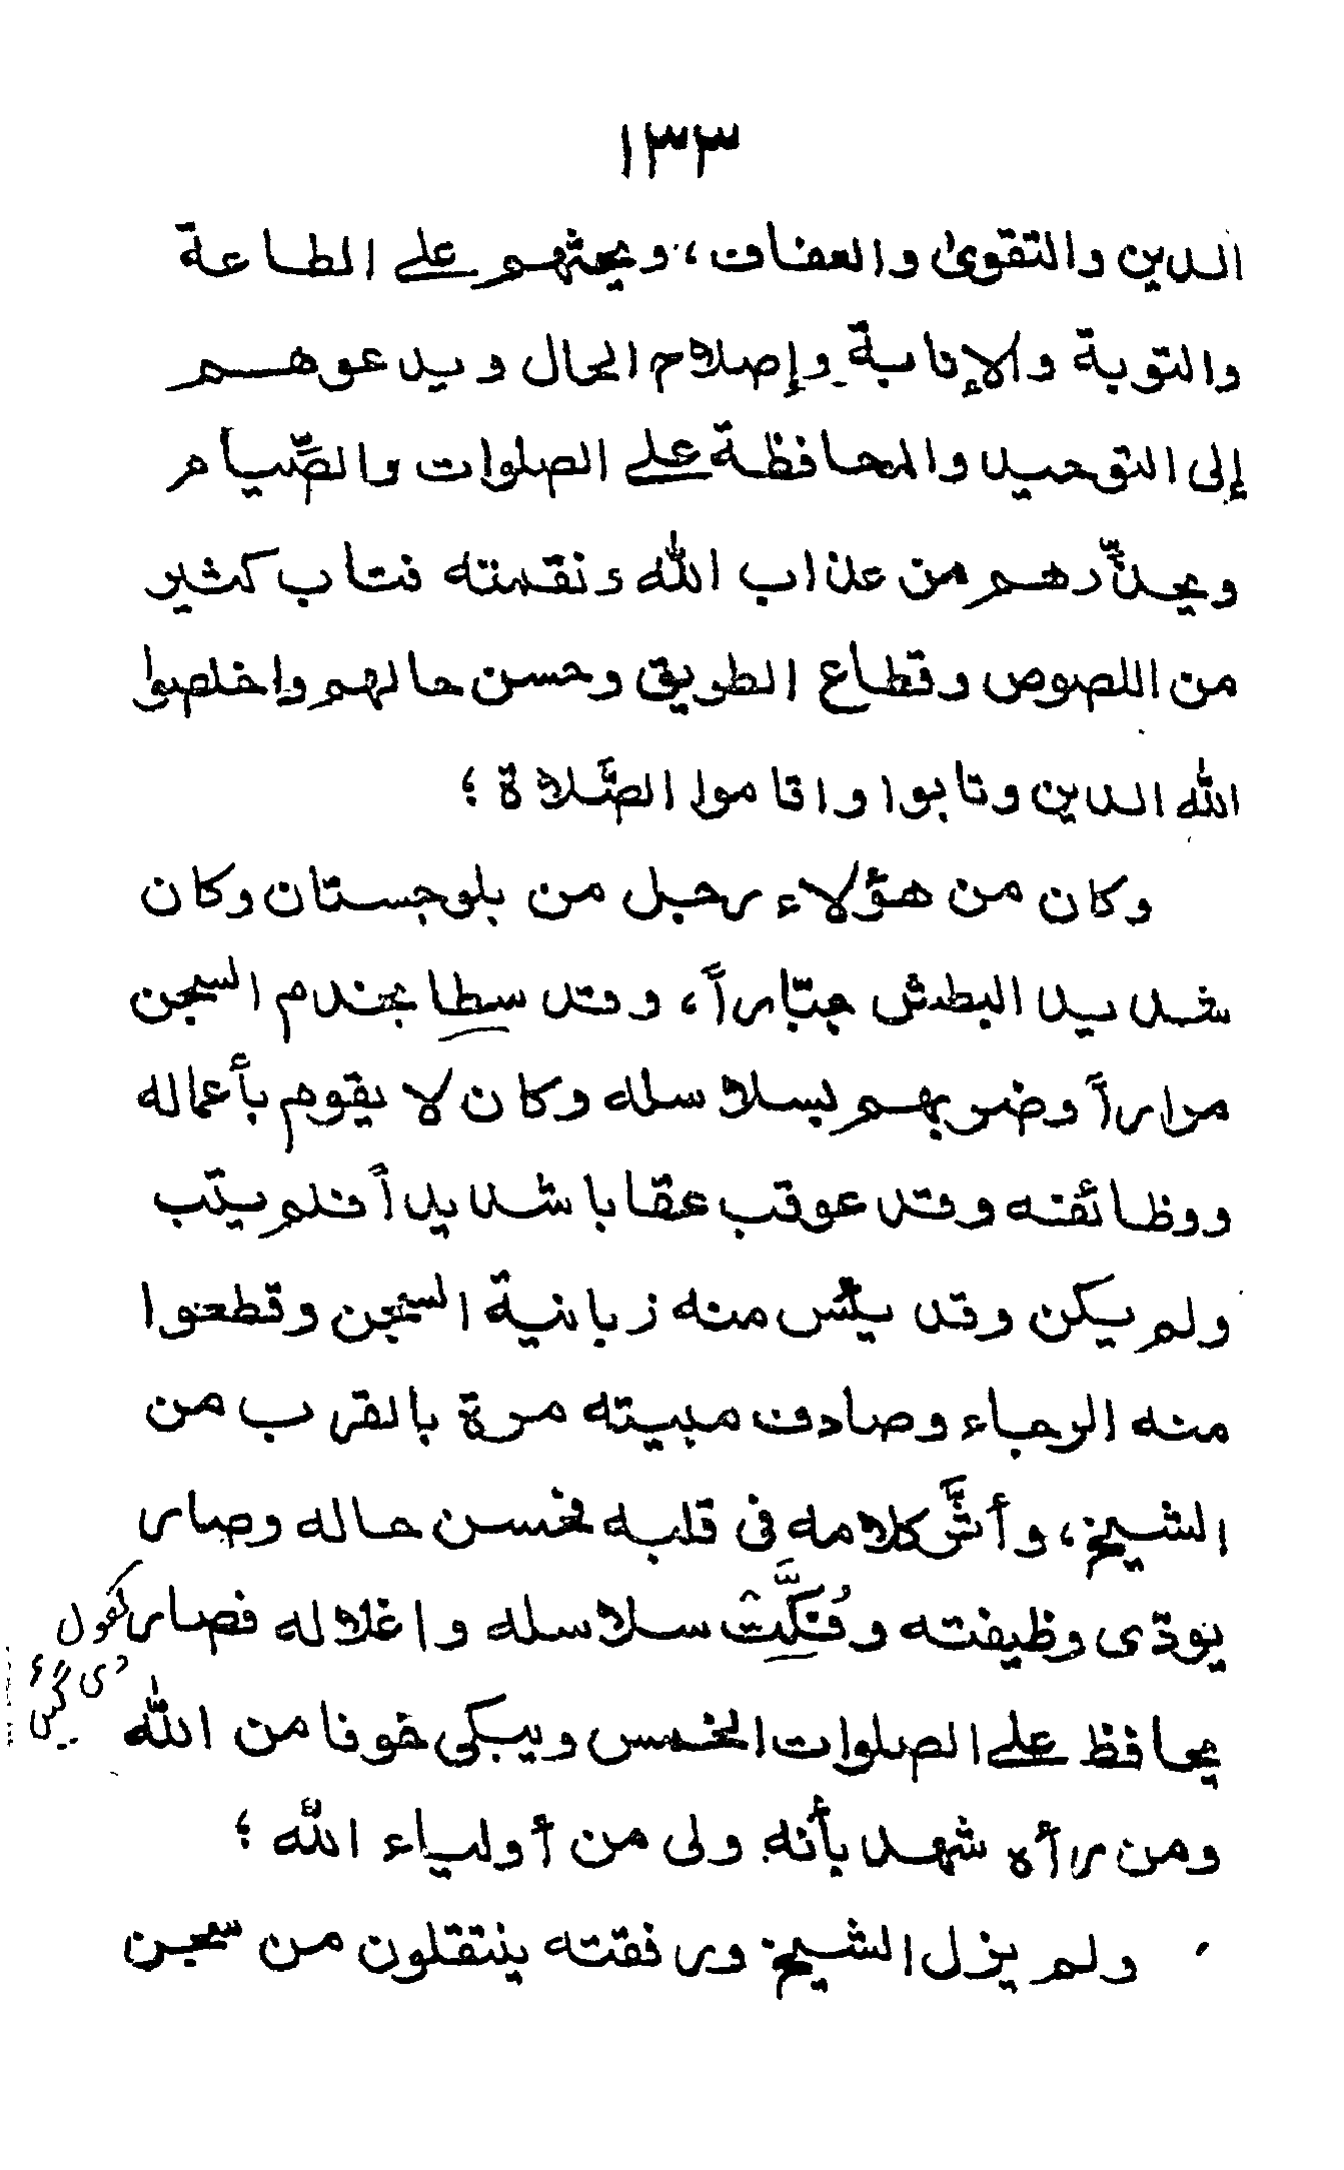 ١٣٣
الدين والتقوىٰ والعفاف، ويحثهم على الطاعة
والتوبة والإنابة وإصلاح الحال ويدعوهم
إلى التوحيد والمحافظة على الصلوات والصِّيام
ويحذّرهم من عذاب الله ونقمته فتاب كثير
من اللصوص وقطاع الطريق وحسن حالهم واخلصوا
الله الدين وتابوا واقاموا الصَّلاة ؛
وكان من هؤلاء رجل من بلوجستان وكان
شديد البطش جبّاراً، وقد سطا بخدم السجن
مراراً وضربهم بسلاسله وكان لا يقوم بأعماله
ووظائفه وقد عوقب عقابا شديداً فلم يتب
ولم يكن وقد يئس منه زبانية السجن وقطعوا
منه الرجاء وصادف مبيته مرة بالقرب من
الشيخ، وأثَّر كلامه فى قلبه فحسن حاله وصار
يودّى وظيفته وفُكَّت سلاسله واغلاله فصار
يحافظ على الصلوات الخمس ويبكى خوفا من الله
ومن رأه شهد بأنه ولى من أولياء الله ؛
ولم يزل الشيخ ورفقته ينتقلون من سجن